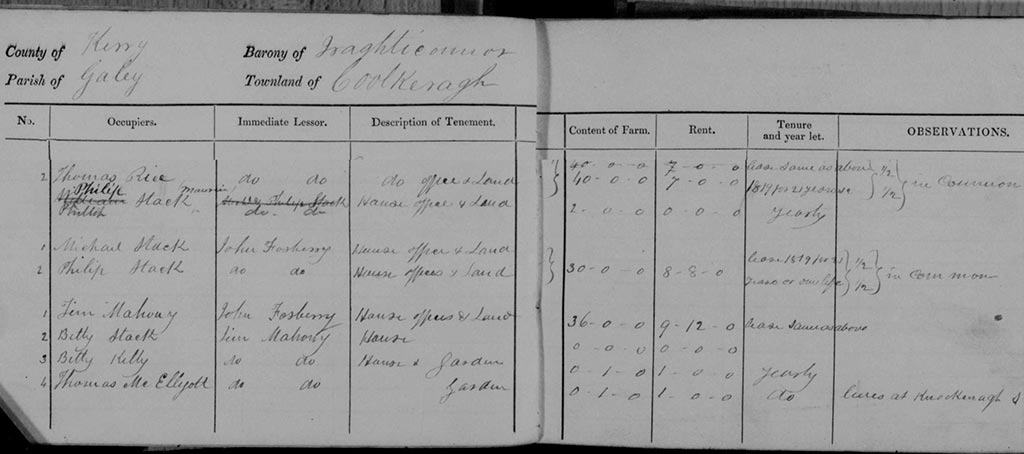 County of Kerry Barony of Iraghticonnor
Parish of Galey Townland of Coolkeragh
No. Occupiers. Immediate Lessor. Description of Tenement. Content of Farm. Rent. Tenure and year let. OBSERVATIONS.
2 Thomas Rice do do do offices & Land 40-0-0 7-0-0 lease same as above 1/2
Philip Maurice 40-0-0 7-0-0 1/2 in Common
Stack Philip Stack House offices & Land
Phillip do do 2-0-0 0-0-0 Yearly
1 Michael Stack John Fosberry House offices & Land lease 1819 for 21 1/2
2 Philip Stack do do House offices & Land 30-0-0 8-8-0 years or one life 1/2 in common
1 Jim Mahony John Fosberry House offices & Land 36-0-0 9-12-0 lease same as above
2 Betty Stack Jim Mahony House 0-0-0 0-0-0
3 Betty Kelly do do House & Garden 0-1-0 1-0-0 Yearly
4 Thomas McEllygott do do Garden 0-1-0 1-0-0 do lives at Knockeragh